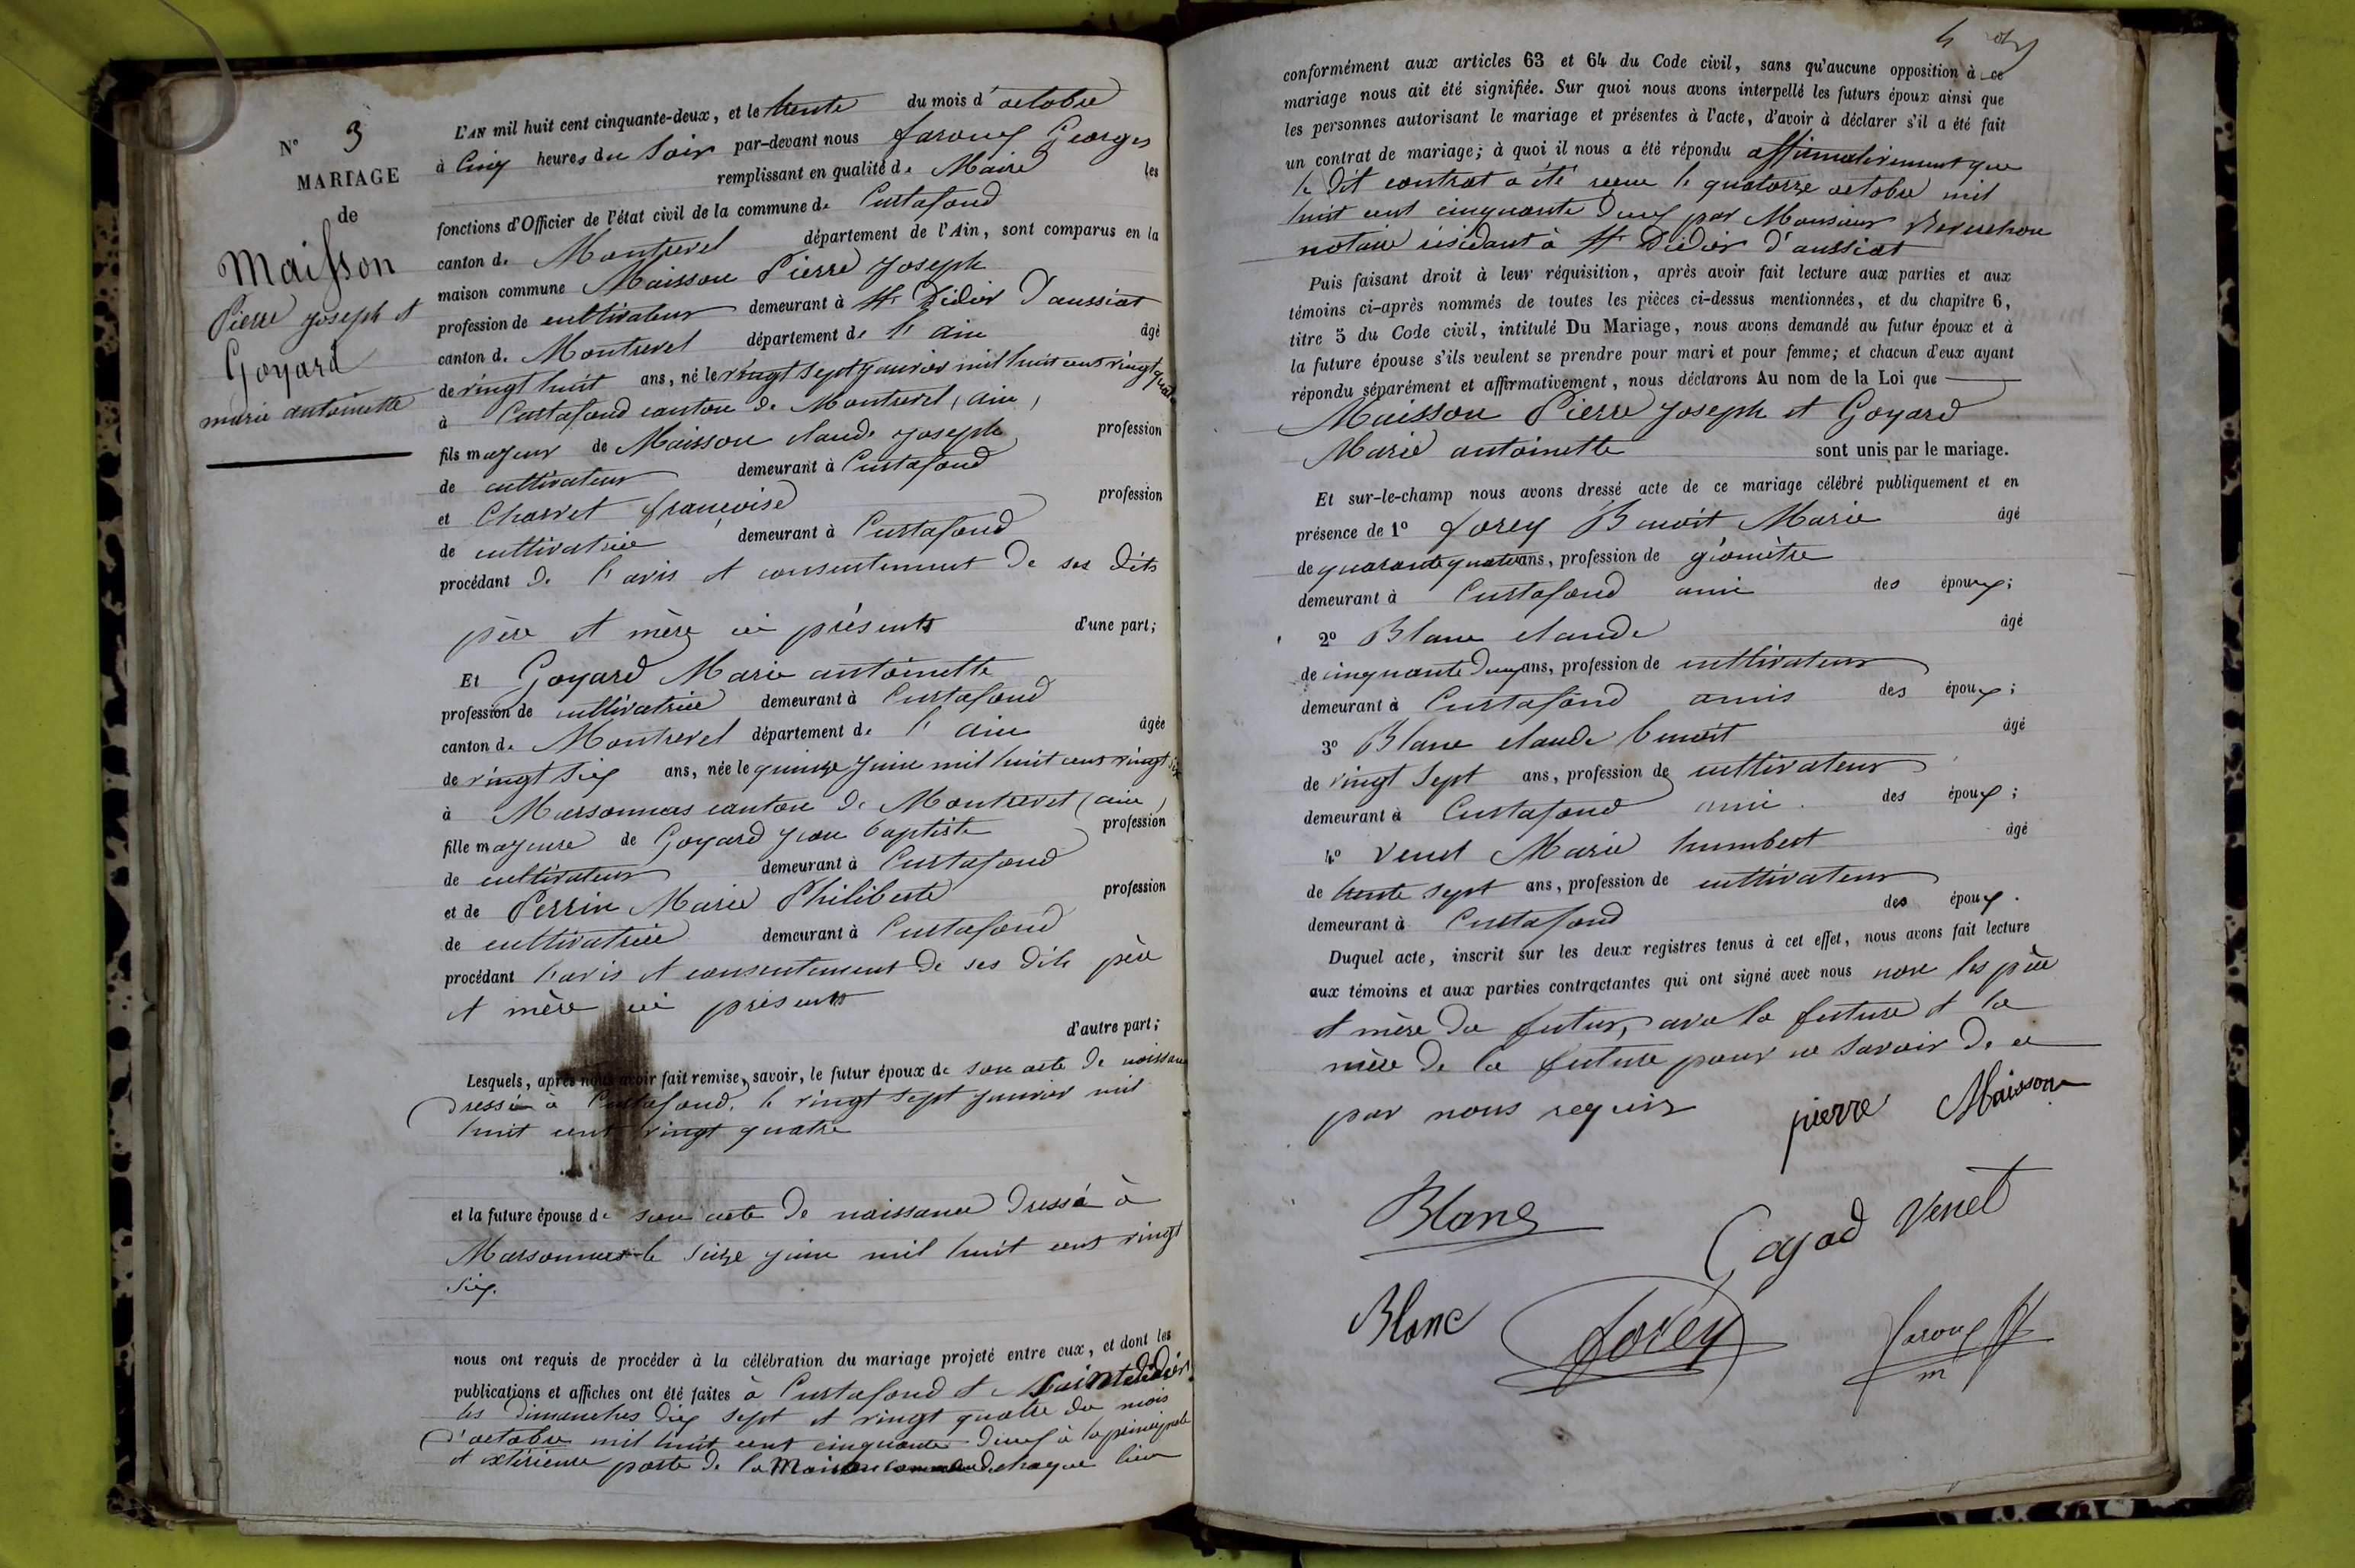 N° 3
MARIAGE
de
Maisson
Pierre joseph et
Goyard
marie antoinette
L'AN mil huit cent cinquante-deux, et le trente du mois d'octobre
à Cinq heures du Soir par-devant nous Georges
remplissant en qualité de Maire les
fonctions d'Officier de l'état civil de la commune de Curtafond
canton de Montrevel département de l'Ain, sont comparus en la
maison commune Maisson Pierre Joseph
profession de cultivateur demeurant à St Didier D'aussiat
canton de Montrevel département de l'ain âgé
de vingt huit ans, né le vingt sept janvier mil huit cent vingt quatre
à Curtafond canton de Montrevel (ain)
fils majeur de Maisson claude joseph profession
de cultivateur demeurant à Curtafond
et Charvet françoise profession
de cultivatrice demeurant à Curtafond
procédant de l'avis et consentement de ses dits
père et mère ici présents d'une part;
Et Goyard Marie antoinette
profession de cultivatrice demeurant à Curtafond
canton de Montrevel département de l'ain âgée
de vingt six ans, née le quinze juin mil huit cent vingt six
à Marsonnas canton de Montrevel (ain)
fille majeure de Goyard jean baptiste profession
de cultivateur demeurant à Curtafond
et de Perrin Marie Philiberte profession
de cultivatrice demeurant à Curtafond
procédant l'avis et consentement de ses dits père
et mère ici présents
d'autre part;
Lesquels, après nous avoir fait remise, savoir, le futur époux de son acte de naissance
Dressé à Curtafond, le vingt sept janvier mil
huit cent vingt quatre
et la future épouse de son acte de naissance Dressé à
Marsonnas le seize juin mil huit cent vingt
six.
nous ont requis de procéder à la célébration du mariage projeté entre eux, et dont les
publications et affiches ont été faites à Curtafond et Saint didier
les Dimanches dix sept et vingt quatre du mois
d'octobre mil huit cent cinquante deux à la principale
et extérieure porte de la Maison commune de chaque lieu
4
conformément aux articles 63 et 64 du Code civil, sans qu'aucune opposition à ce
mariage nous ait été signifiée. Sur quoi nous avons interpellé les futurs époux ainsi que
les personnes autorisant le mariage et présentes à l'acte, d'avoir à déclarer s'il a été fait
un contrat de mariage; à quoi il nous a été répondu affirmativement que
le dit contrat a été recue le quatorze octobre mil
huit cent cinquante deux par Monsieur
notaire résidant à St Didier d'aussiat
Puis faisant droit à leur réquisition, après avoir fait lecture aux parties et aux
témoins ci-après nommés de toutes les pièces ci-dessus mentionnées, et du chapitre 6,
titre 5 du Code civil, intitulé Du Mariage, nous avons demandé au futur époux et à
la future épouse s'ils veulent se prendre pour mari et pour femme; et chacun d'eux ayant
répondu séparément et affirmativement, nous déclarons Au nom de la Loi que
Maisson Pierre Joseph et Goyard
Marie antoinette sont unis par le mariage.
Et sur-le-champ nous avons dressé acte de ce mariage célébré publiquement et en
présence de 1° Forey Benoit Marie âgé
de quarante quatre ans, profession de géomètre
demeurant à Curtafond ami des époux;
2° Blanc claude âgé
de cinquante deux ans, profession de cultivateur
demeurant à Curtafond amis des époux;
3° Blanc claude benoit âgé
de vingt sept ans, profession de cultivateur
demeurant à Curtafond ami des époux;
4° Venet Marie humbert âgé
de trente sept ans, profession de cultivateur
demeurant à Curtafond des époux.
Duquel acte, inscrit sur les deux registres tenus à cet effet, nous avons fait lecture
aux témoins et aux parties contractantes qui ont signé avec nous non les père
et mère du futur, avec la future et la
mère de la future pour ne savoir de ce
par nous requis pierre Maisson
Blanc
Goyad Venet
Blanc Forey